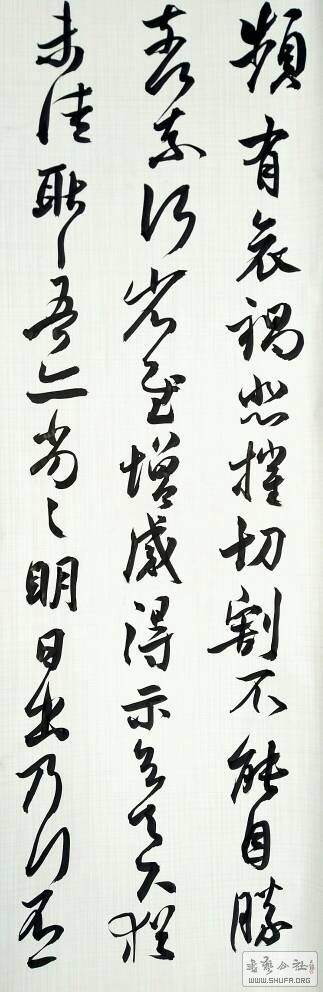 頻有哀禍悲摧切割不能自勝
奈何奈何省慰增感得示知足下猶
未佳耿〻吾亦劣〻明日出乃行不
WWW.SHUFA.ORG